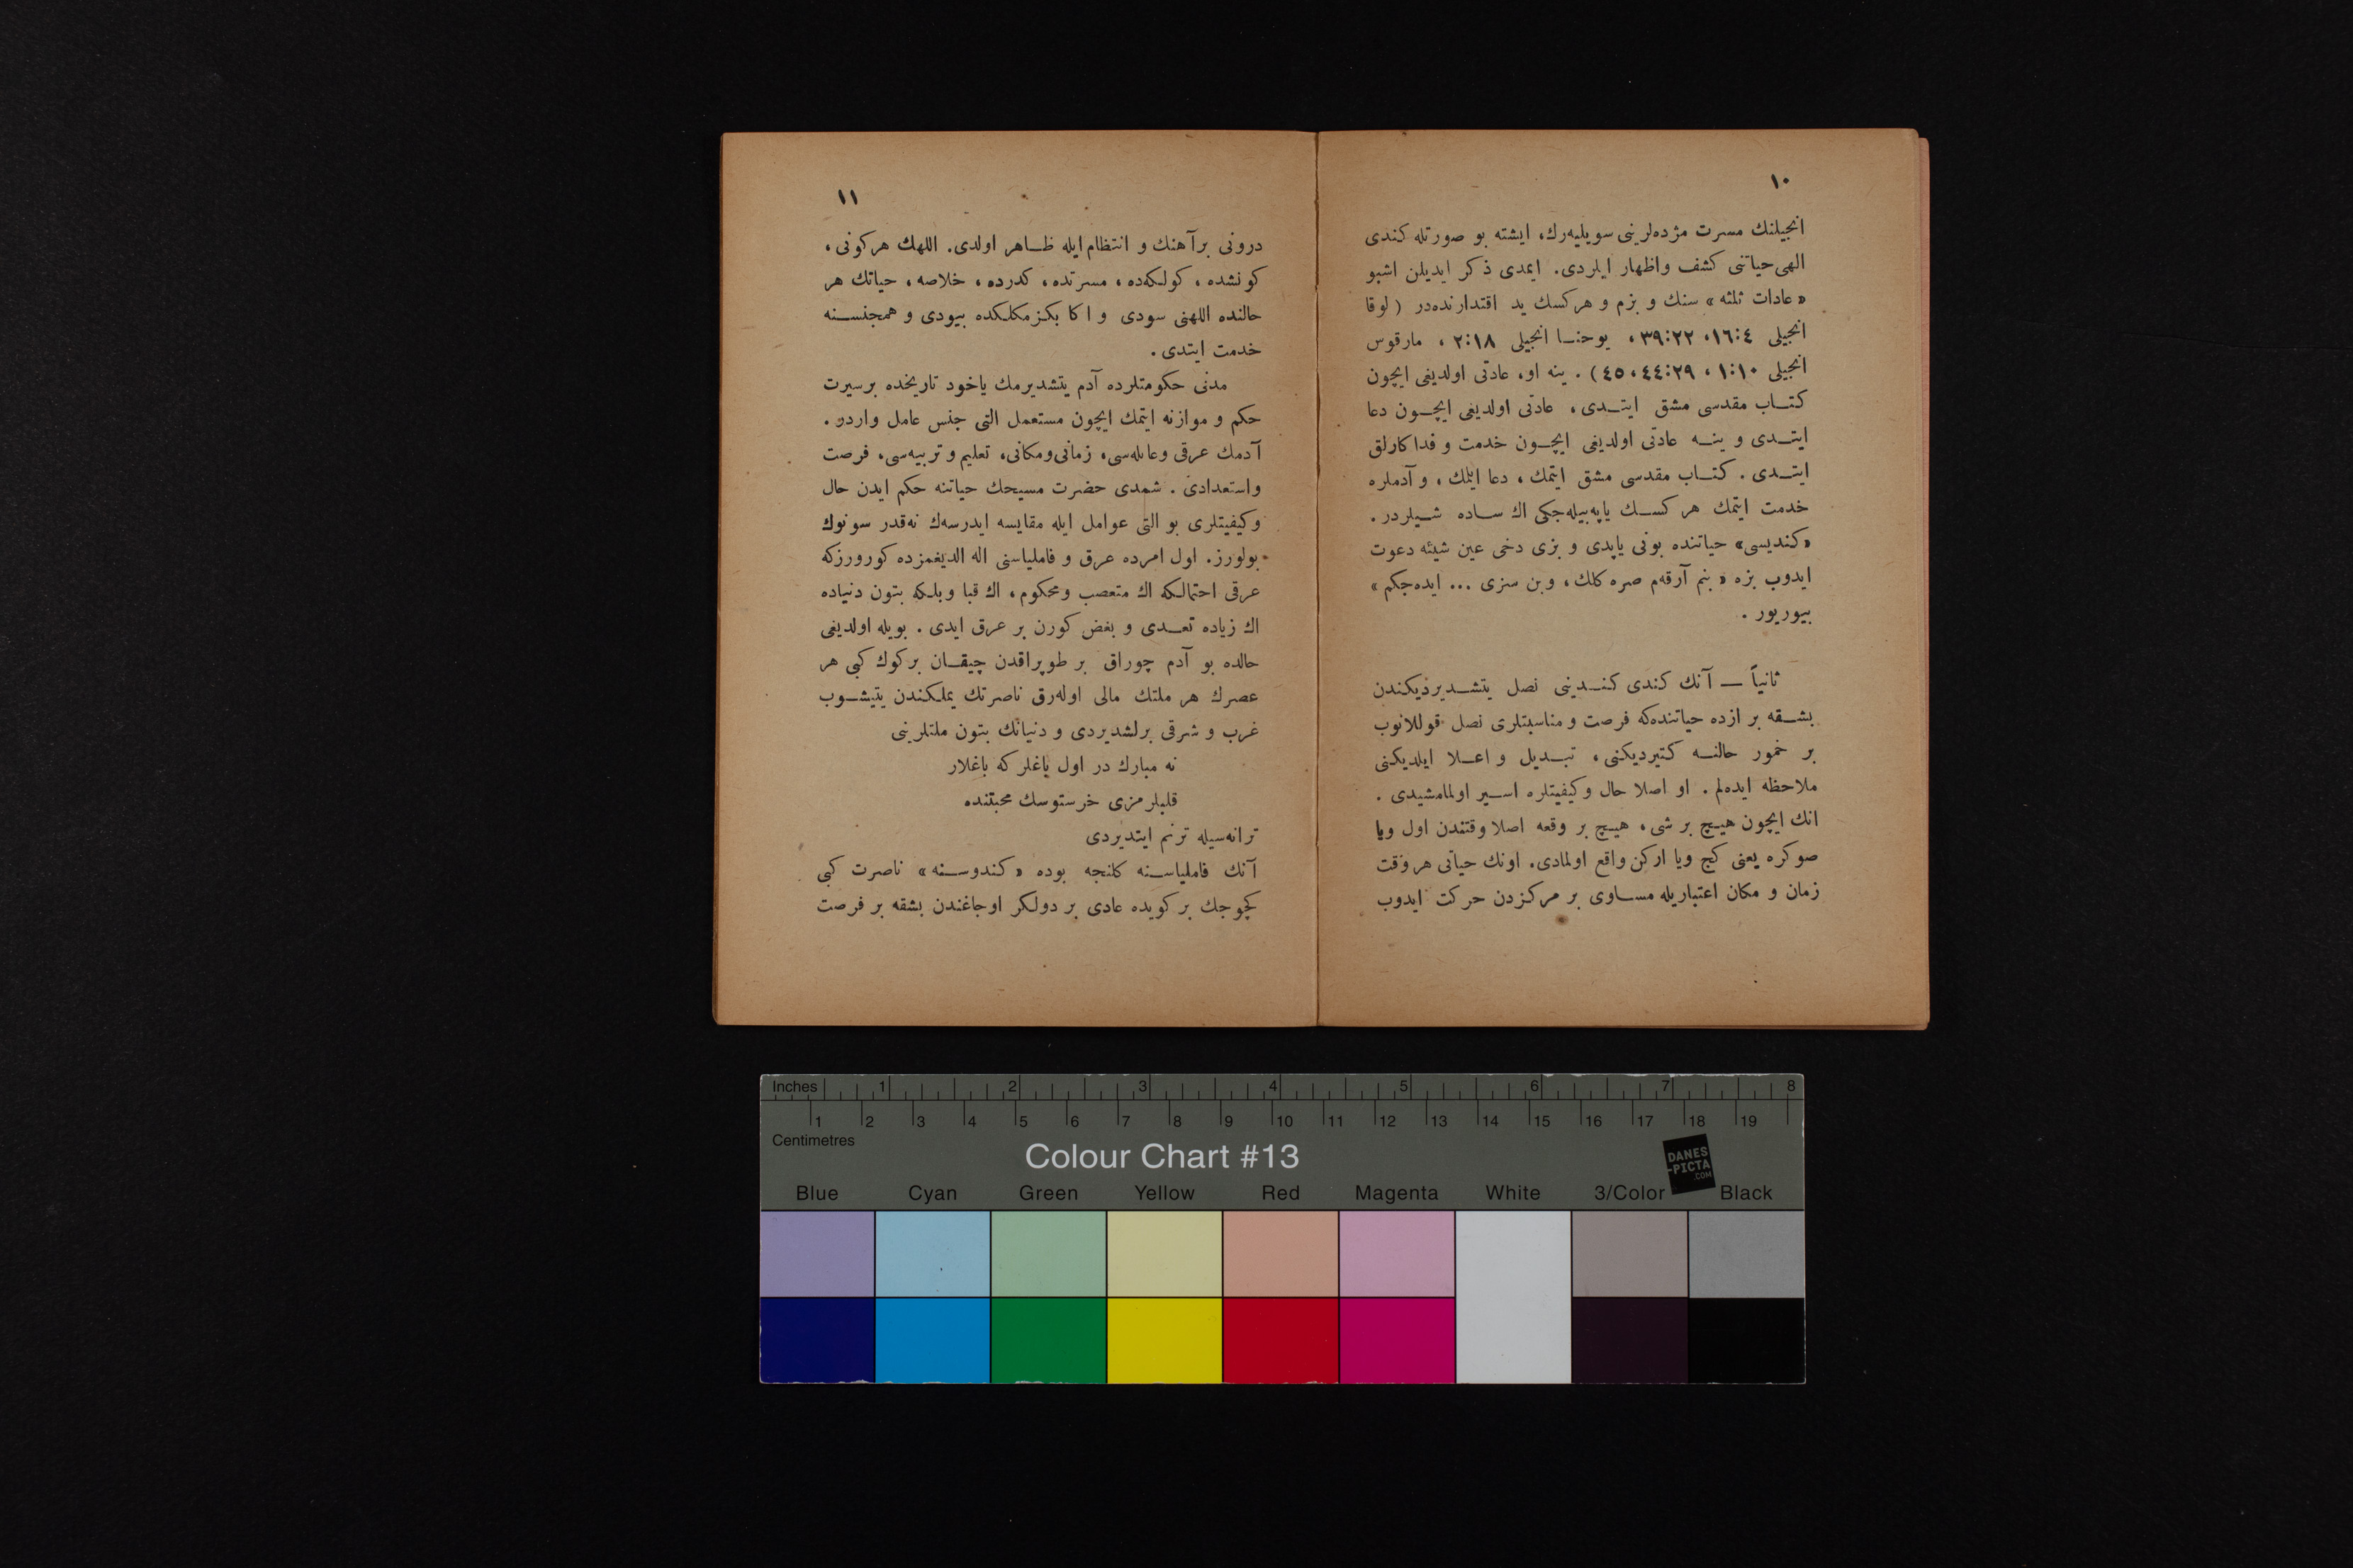 ١٠
انجیلنك مسرت مژده‌لرینی سویلیه‌رك، ایشته بو صورتله کندی
الهی حیاتنی کشف واظهار ایلردی. ایمدی ذکر ایدیلن اشبو
«عادات ثلثه» سنك و بزم و هرکسك ید اقتدارنده‌در (لوقا
انجیلی ٤:‏١٦، ٢٢:‏٣٩، یوحنـا انجیلی ١٨:‏٢، مارقوس
انجیلی ١٠:‏١، ٢٩:‏٤٤، ٤٥). ینه او، عادتی اولدیغی ایچون
کتـاب مقدسی مشق ایتـدی، عادتی اولدیغی ایچـون دعا
ایتـدی و ینـه عادتی اولدیغی ایچـون خدمت و فداکارلق
ایتـدی. کتـاب مقدسی مشق ایتمك، دعا ایلمك، و آدملره
خدمت ایتمك هر کسـك یاپه‌بیله‌جکی اك سـاده شـیلردر.
«کندیسی» حیاتنده بونی یاپدی و بزی دخی عین شیئه دعوت
ایدوب بزه «بنم آرقه‌م صره کلك، وبن سزی ... ایده‌جکم»
بیوریور.
ثانیاً — آنك کندی کنـدینی نصل یتشـدیردیکندن
بشـقه بر ازده حیاتنده‌که فرصت و مناسبتلری نصل قوللانوب
بر خمور حالنـه کتیردیکنی، تبـدیل و اعـلا ایلدیکنی
ملاحظه ایده‌لم. او اصلا حال وکیفیتلره اسـیر اولمامشیدی.
انك ایچون هیـچ بر شی، هیـچ بر وقعه اصلا وقتندن اول ویا
صوکره یعنی کچ ویا ارکن واقع اولمادی. اونك حیاتی هر وقت
زمان و مکان اعتباریله مسـاوی بر مرکزدن حرکت ایدوب
١١
درونی برآهنك و انتظام ایله ظـاهر اولدی. اللهك هرکونی،
کونشده، کولکه‌ده، مسرتده، کدرده، خلاصه، حیاتك هر
حالنده اللهنی سودی و اکا بکزمکلکده بیودی و همجنسـنه
خدمت ایتدی.
مدنی حکومتلرده آدم یتشدیرمك یاخود تاریخده برسیرت
حکم و موازنه ایتمك ایچون مستعمل التی جنس عامل واردر.
آدمك عرقی وعائله‌سی، زمانی‌ومکانی، تعلیم و تربیه‌سی، فرصت
واستعدادی. شمدی حضرت مسیحك حیاتنه حکم ایدن حال
وکیفیتلری بو التی عوامل ایله مقایسه ایدرسه‌ك نه‌قدر سونوك
بولورز. اول امرده عرق و فاملیاسنی اله الدیغمزده کورورزکه
عرقی احتمالکه اك متعصب ومحکوم، اك قبا وبلکه بتون دنیاده
اك زیاده تعـدی و بغض کورن بر عرق ایدی. بویله اولدیغی
حالده بو آدم چوراق بر طوپراقدن چیقـان برکوك کبی هر
عصرك هر ملتك مالی اوله‌رق ناصرتك یملکندن یتیشـوب
غرب و شرقی برلشدیردی و دنیانك بتون ملتلرینی
نه مبارك در اول باغلر که باغلار
قلبلرمزی خرستوسك محبتنده
ترانه‌سیله ترنم ایتدیردی
آنك فاملیاسـنه کلنجه بوده «کندوسـنه» ناصرت کبی
کچوجك بر کویده عادی بر دولکر اوجاغندن بشقه بر فرصت
Inches 1 2 3 4 5 6 7 8
1 2 3 4 5 6 7 8 9 10 11 12 13 14 15 16 17 18 19
Centimetres
Colour Chart #13
DANES
-PICTA
.COM
Blue Cyan Green Yellow Red Magenta White 3/Color Black